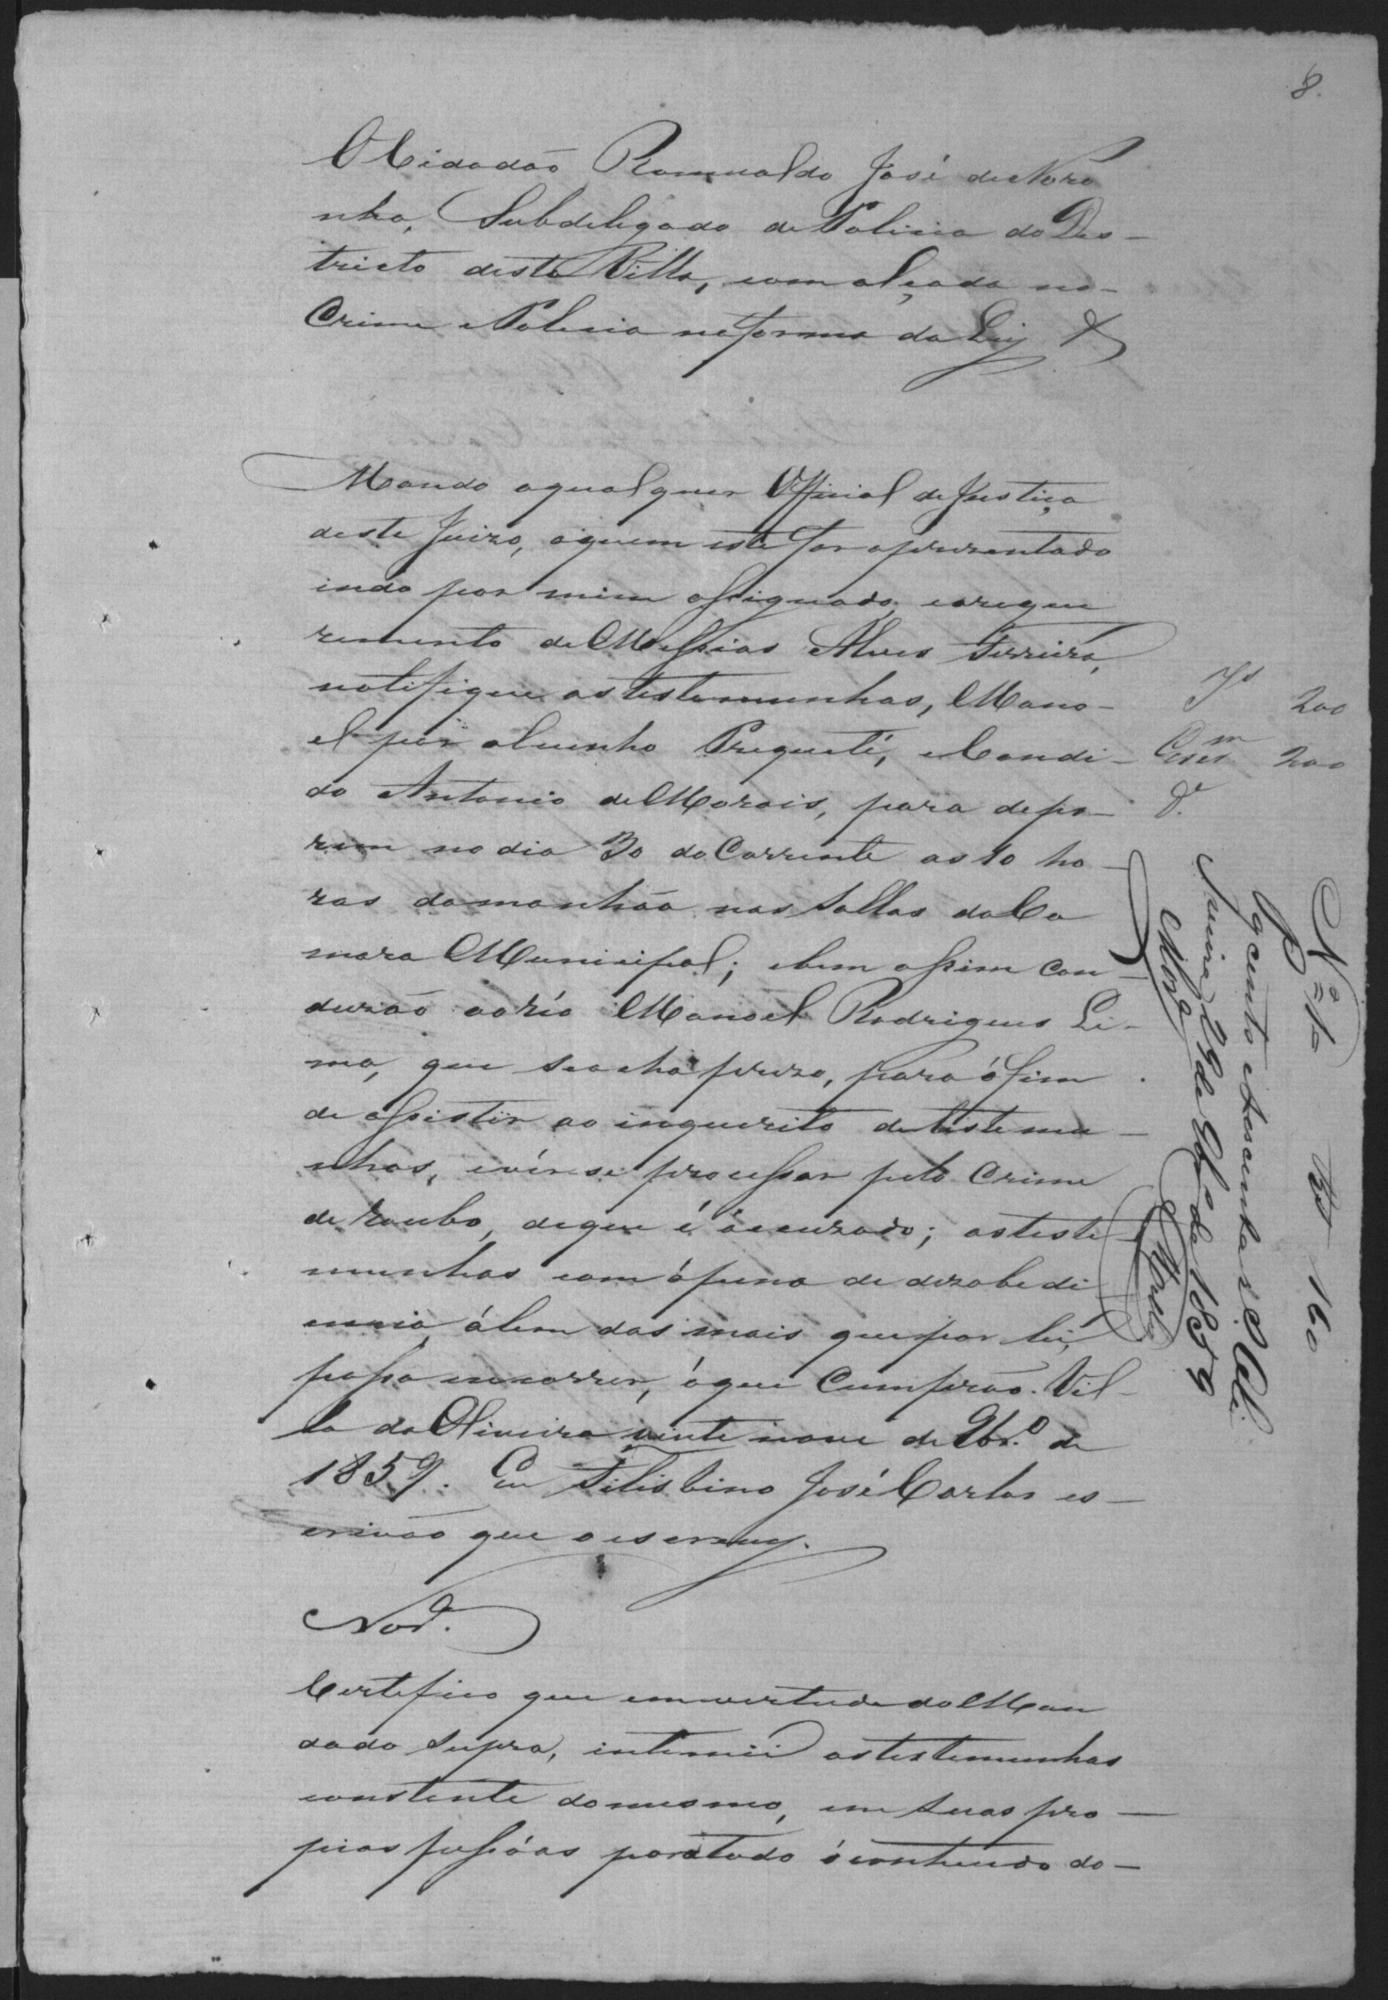 8.
O Cidadão Romualdo José de Noro
nha, Subdeligado de Policia do Des-
tricto desta Villa, com alçada no
Crime e Policia na forma da Ley &
Mando aqualquer Official de Justiça
deste Juizo, aquem este for aprezentado
indo por mim assignado, e a reque
rimento de Messias Alves Ferreira,
notifique as testemunhas, Mano-
el por alcunho Prequeté, e Candi-
do Antonio de Morais, para depo-
rem no dia 30 do Corrente as 10 ho-
ras da manhãa nas Sallas da Ca
mara Municipal; e bem assim con-
duzão ao réo Manoel Rodrigues Li-
ma, que se acha prezo, para ó fim
de assistir ao inquerito de testemu-
nhas, e vêr-se processar pelo Crime
de roubo, de que é accuzado; as teste-
munhas com á pena de dezobedi
encia, álem das mais que por lei,
possa incorrer, ó que Cumprão. Vil-
la da Oliveira vinte nove de 9br.º de
1859. Eu Felisbino José Carlos es-
crivão que o escrevy.
Nor.ª
Certifico que em vertude do Man
dado supra, intimei as testemunhas
constente do mesmo, em suas pro-
prias pessôas para todo ó contheudo do-
Js 200
200
Nº 10 160
P g cento e sescenta r.
29 de 9br.º de 1859